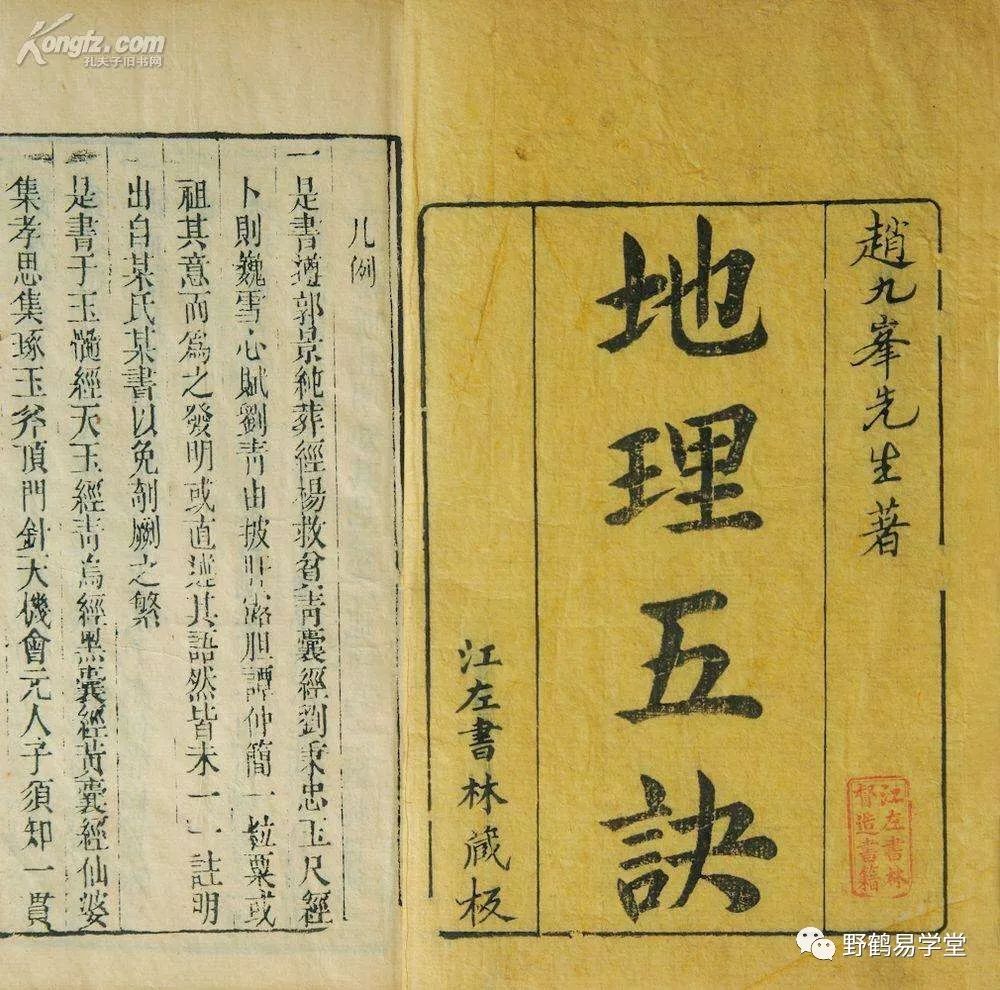 趙九峯先生著
地理五訣
江左書林蔵板
江左書林
督造書籍
凡例
一是書遵郭景純葬經楊救貧青囊經劉秉忠玉尺經
卜則巍雪心賦劉青田披肝露胆譚仲簡一粒粟或
祖其意而為之發明或直遵其語然皆未一一註明
出自某氏某書以免剞劂之繁
一是書于玉髓經天玉經青烏經黑囊經黃囊經仙婆
集孝思集琢玉斧頂門針大機會元人子須知一貫
Kongfz.com
孔夫子旧书网
野鹤易学堂